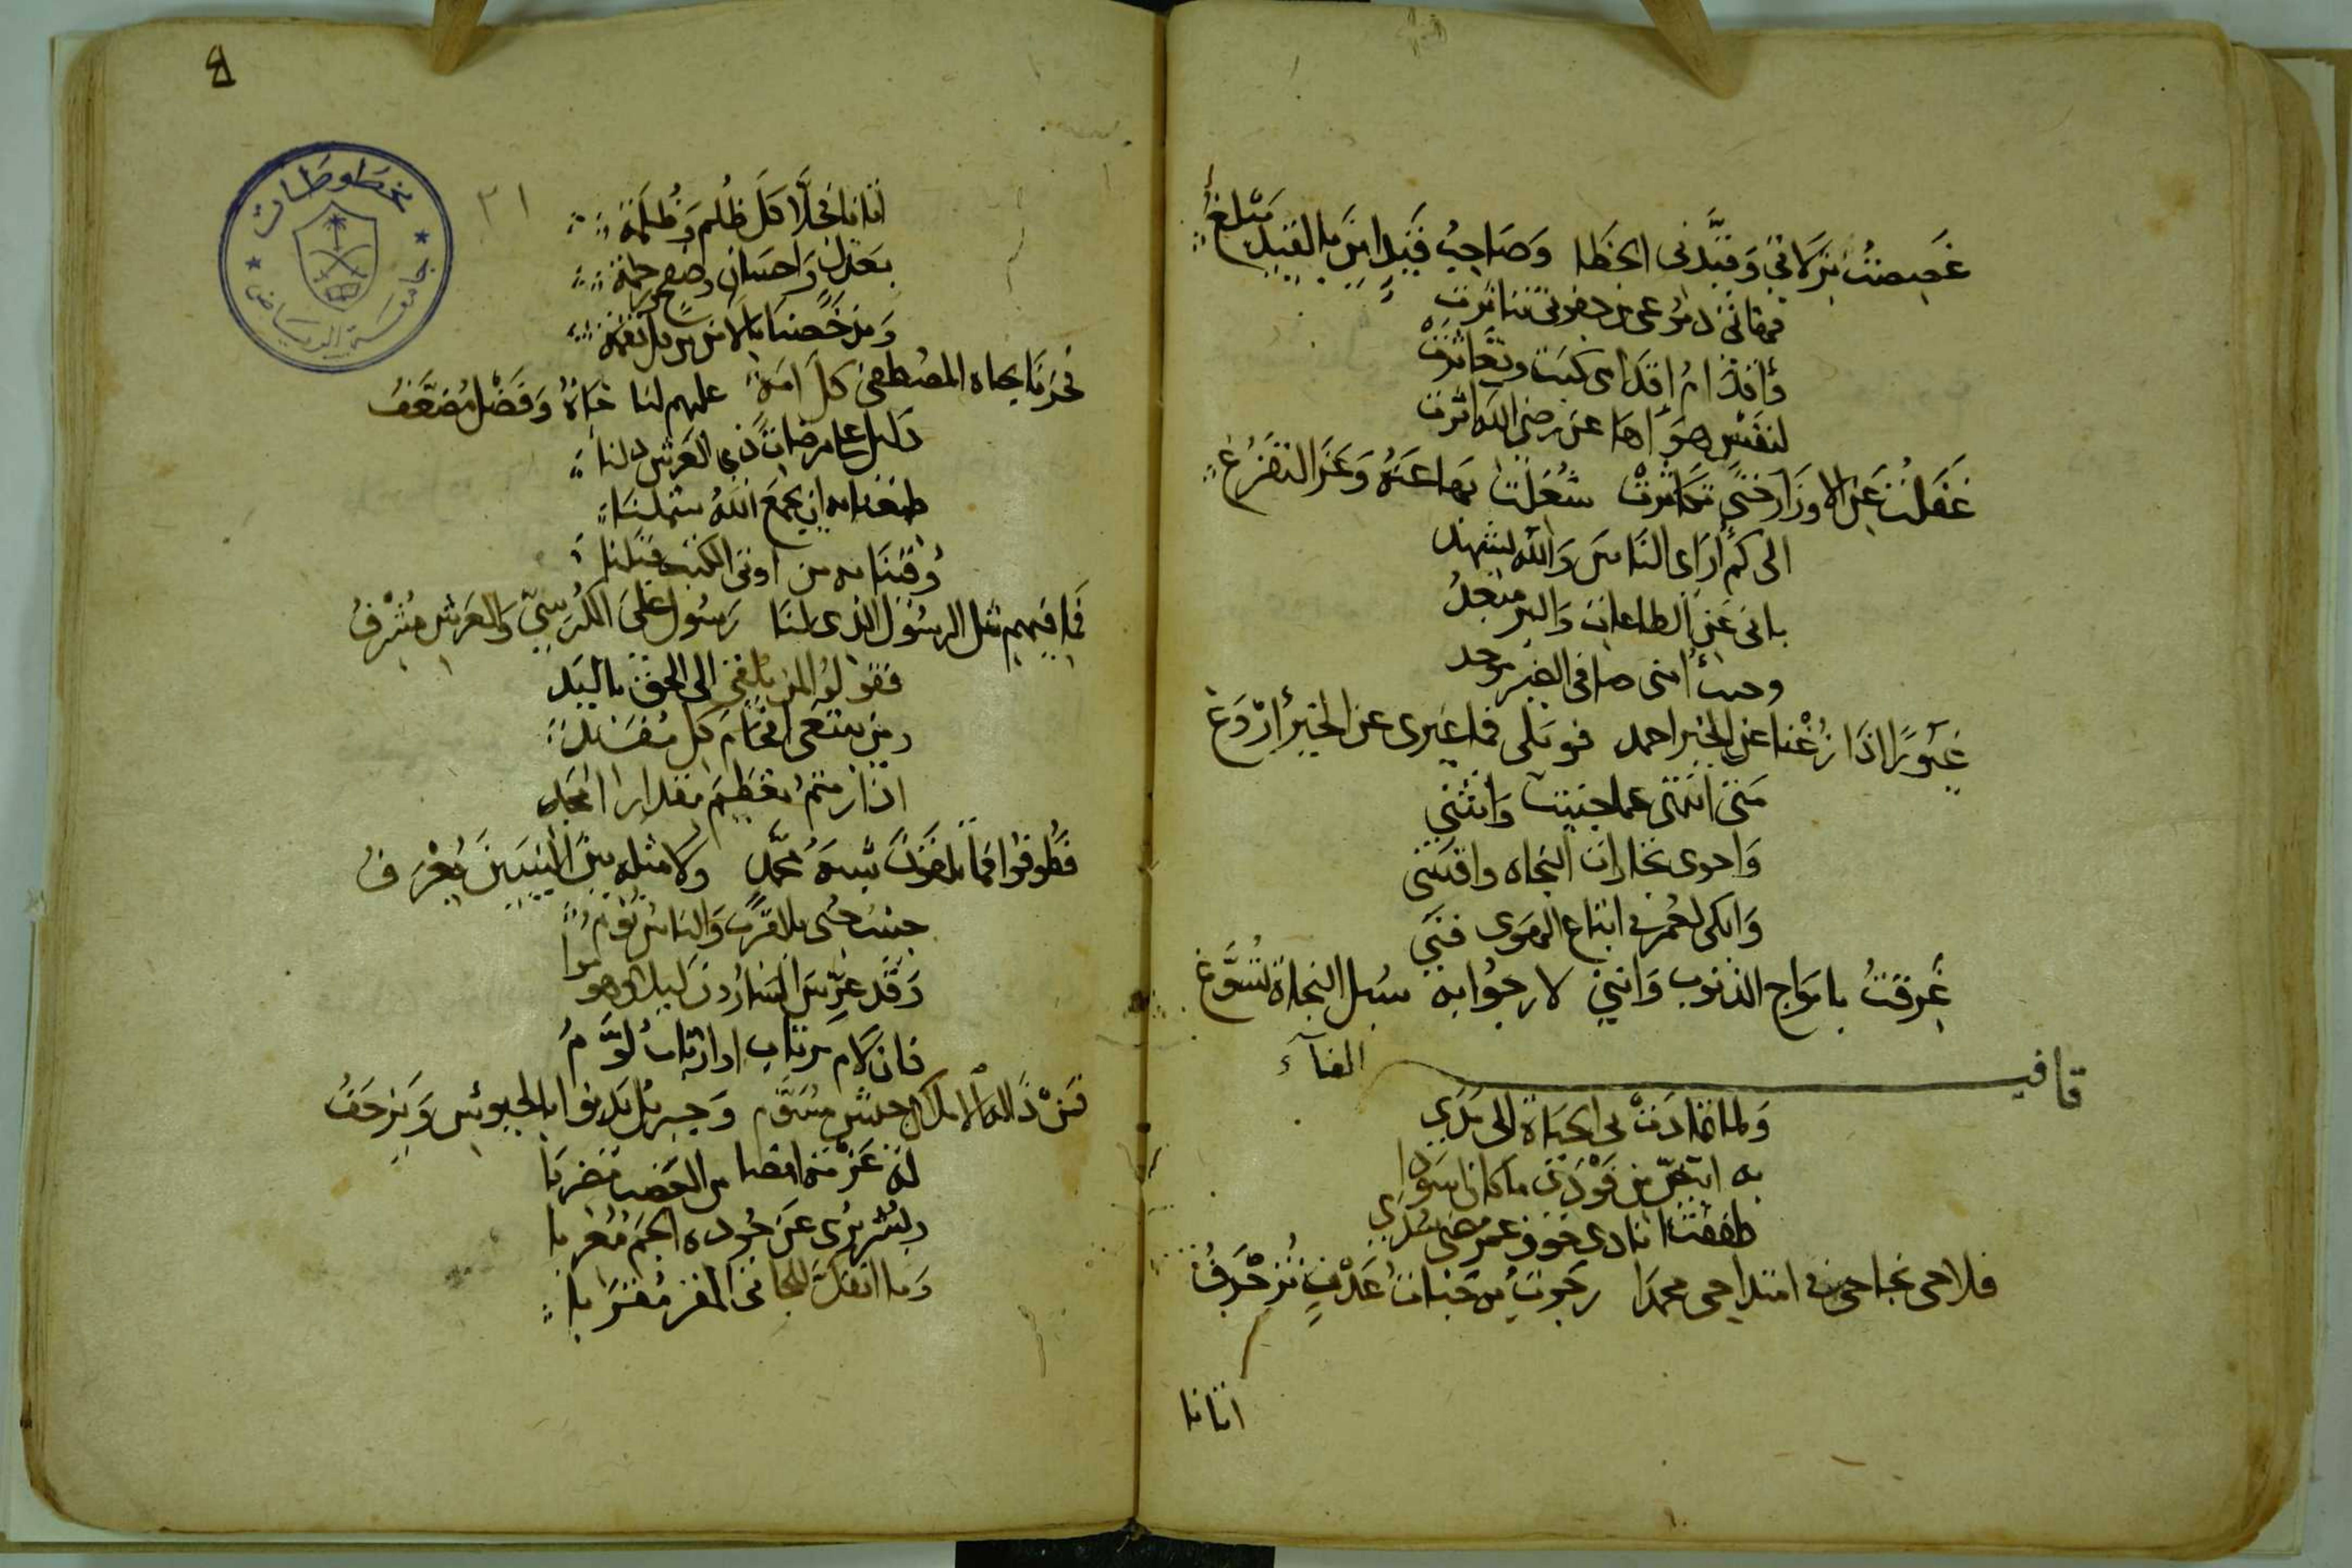 غَصِصتُ بزلاتي وَقيَّدني الخطا وَصَاحبُ قَيدٍ اين بالقيد يَبلغ
فها في دموعي من جفوني تناثرت
وأقدام إقدامي كبت وتعاثرت
لنفس هوَاها عن رضى الله اثرت
غَفلتُ عَنِ الاوزَار حَتى تكاثرت شُغلتُ بها عنهُ وَعَن التفرغ
الى كم أراى الناس وَالله يشهد
بانى عَنِ الطاعات وَالبر مبعدُ
وحب امنى صافى
غيورًا اذا زغنا عن الخير احمد فويلى فما غيرى عن الخير اروَغ
متى انتهى عما جنيت وَانثنى
وَاحوى تجارات النجاه واقتنى
وَابكى لعمر في اتباع الهوى فنى
غرقتُ بامواج الذنوب وَاننى لارجُوا به سبل النجاة تُسَوَّغ
قافية الفآء
وَلما تمادَت بى الحيَاة الى مَدَى
به ابيض من فَودَيّ ما كان اسَودا
طفقت انادى خوف عمر مضى سُدى
فلاحى نجاحى في امتداحى محمدَا رجوت به جنات عَدْنٍ تُزخرَفُ
اتانا
٤
مخطوطات
جامعة الرياض
٢١
اتانا فجلَّا كلَ ظُلم وَظُلمَة
بعَدل وَاحسَان وصفح وَرحمة
وَمن خصنا بالامن من كل نقمة
فحزنا بجاه المصطفى كل امة عليهم لنا جَاهٌ وَفَضْل مُضَعَّفُ
دَليل على مرضات ذي العَرش دلنا
طمعنا به ان يجمعَ اللهُ شملنَا
وُقينَا به من اوتى الكتب قبلنا
فما فيهم مثل الرسُول الذى لنا رَسُول عَلى الكُرسِيّ وَالعَرش مُشْرفُ
فقولوا لمن يُلقى الى الحق باليَد
ومن يبتغى افحام كل مفند
اذا رمتم تعظيم مقدار امجد
فطُوفوا فما بالعَرب شبه محمَّدٍ ولا مثله بين النبيين يُعْرَفُ
حبيب حُبى بالقرب وَالناس نُوَّمُ
وَقد عرّس السارُون ليلا وهوموا
فان لام مرتاب اوارتاب لُوَّمُ
فمن ذا له الاملاك جيش مسَوَّم وَجبريل يَدنوا بالجيوش وَيزحَفُ
لهُ عَزْمة امضا من العَضب مَضرِبَا
وبشر يُرى عن جُوده الجم مُعْربا
وَما انفك للجانى المفر مُقَرِّبا